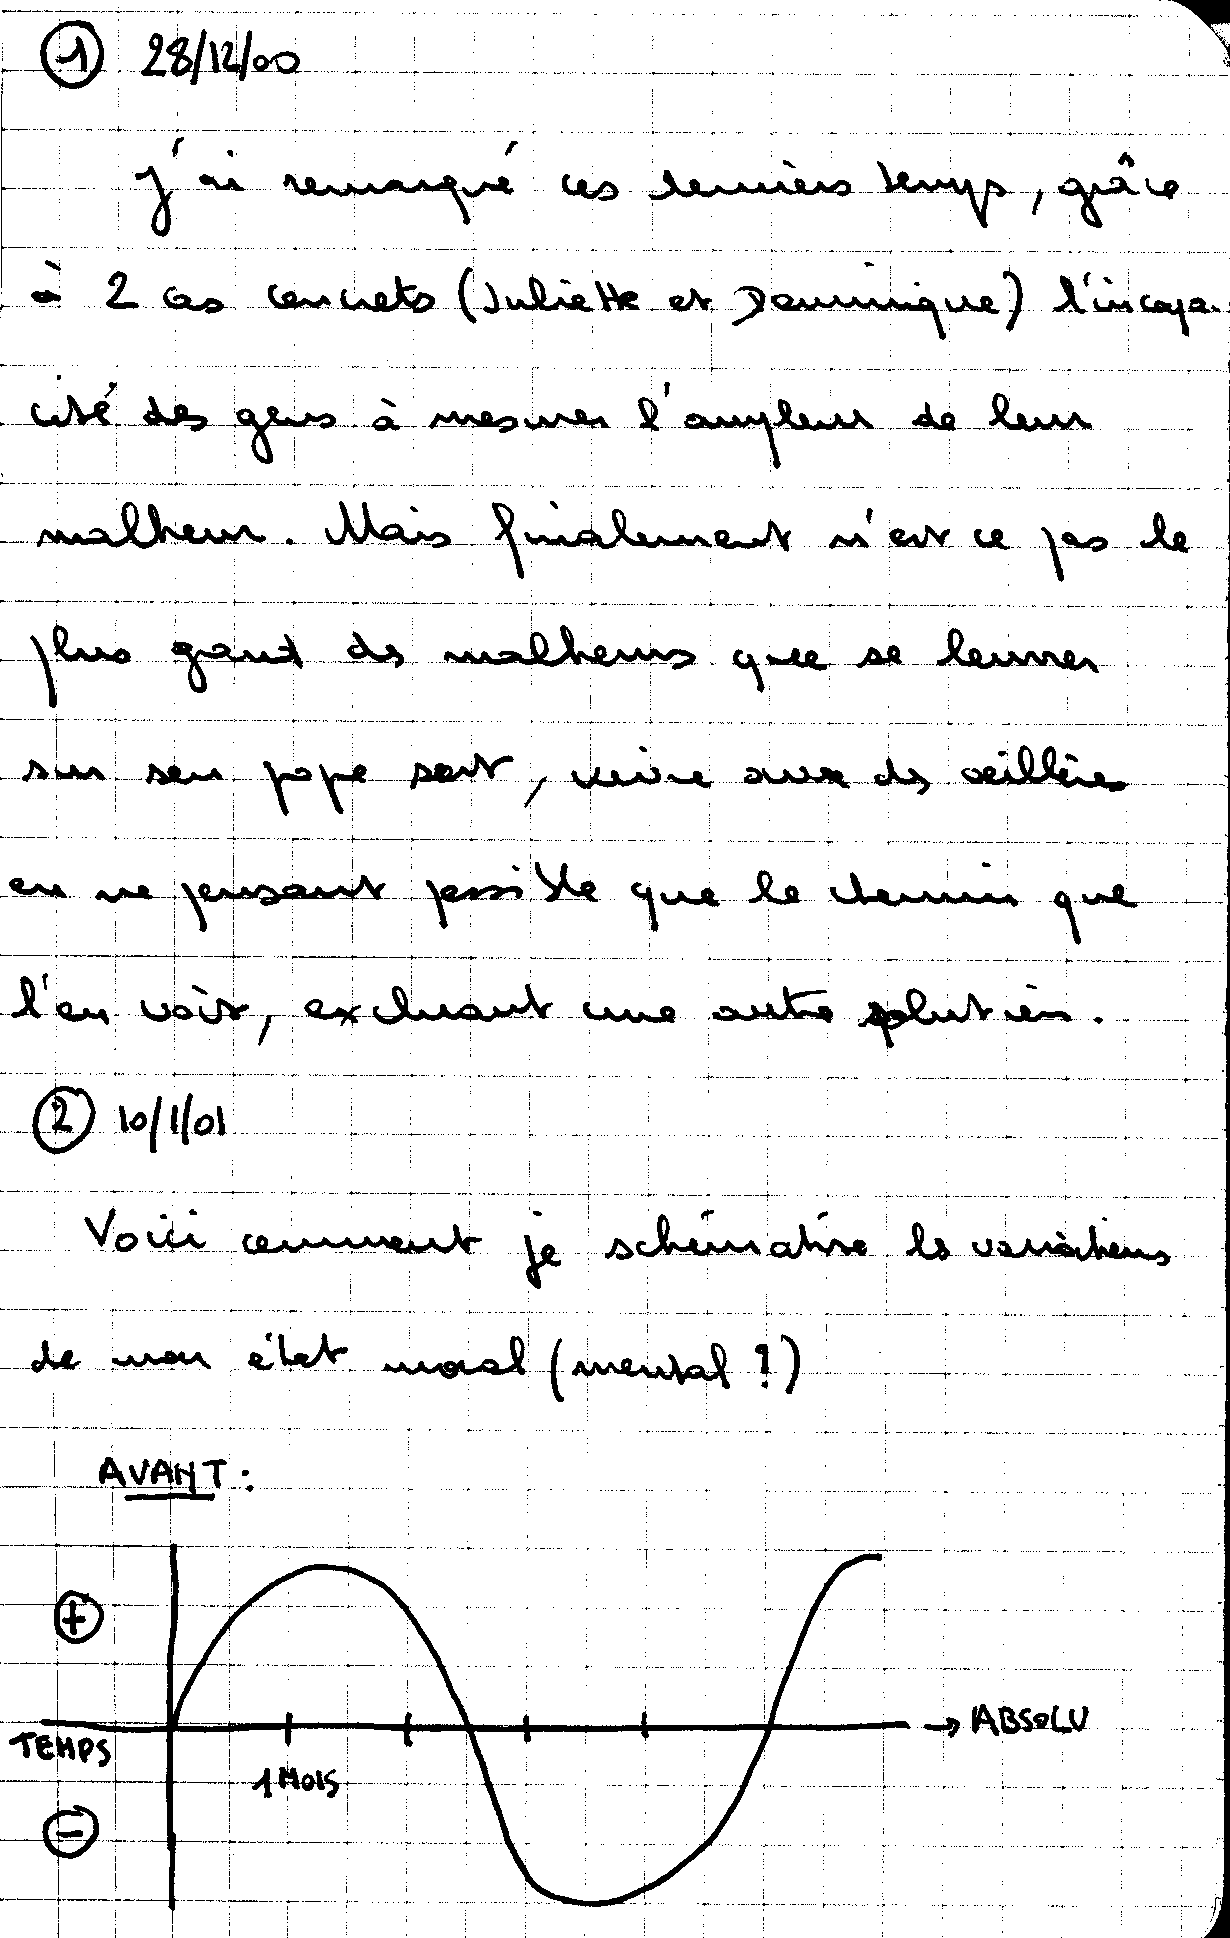 1 28/12/00
J'ai remarqué ces derniers temps, grâce
à 2 cas concrets (Juliette et Dominique) l'incapa-
cité des gens à mesurer l'ampleur de leur
malheur. Mais finalement n'est ce pas le
plus grand des malheurs que se leurrer
sur son propre sort, vivre avec des oeillères
en ne pensant possible que le chemin que
l'on voit, excluant une autre solution.
2 10/1/01
Voici comment je schématise les variations
de mon état moral (mental ?)
AVANT :
+
TEMPS
1 MOIS
→ ABSOLU
-